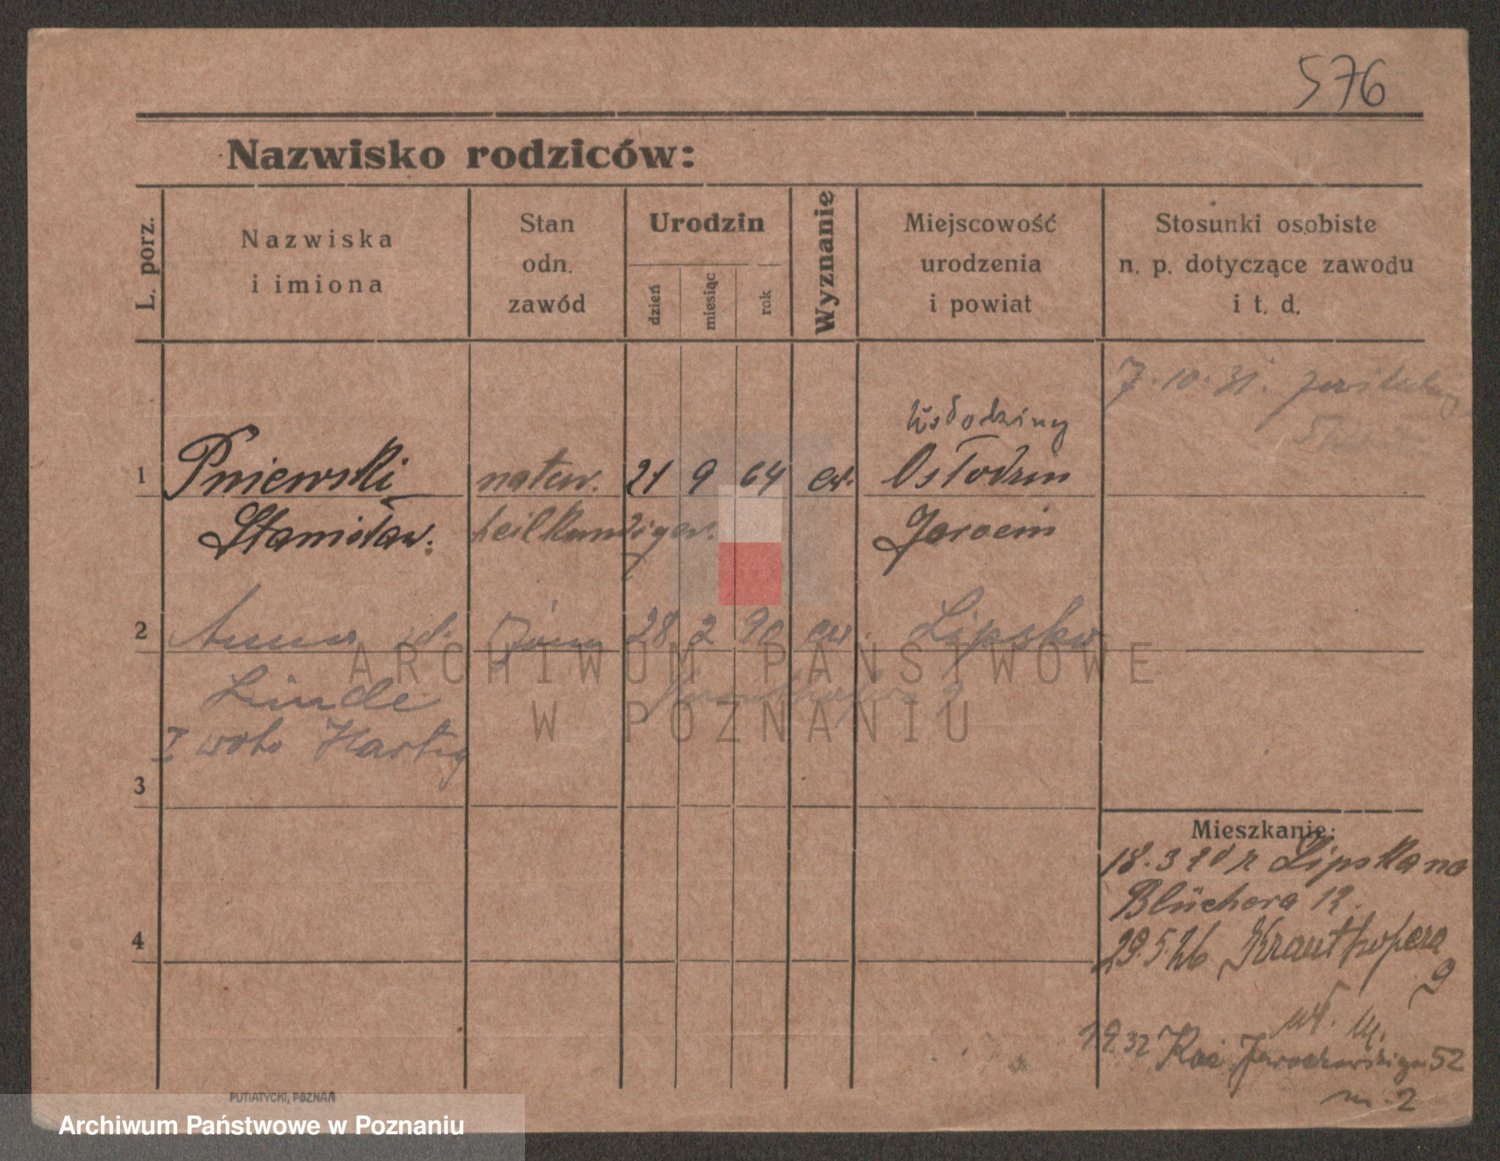 576
Nazwisko rodziców:
L. porz.
Nazwiska
i imiona
Stan
odn.
zawód
Urodzin
dzień
miesiąc
rok
Wyznanie
Miejscowość
urodzenia
i powiat
Stosunki osobiste
n. p. dotyczące zawodu
i t. d.
7.10.31.
1 Pniewski naturw. 21 9 64 ew. Osłodzin
Stanisław. heilkundiger. Jarocin
2 Anna d. żona 28 2 90 ew. Lipsko
Linde Krauthofera 9
I woto Hartig
3
4
Mieszkanie:
18.3 20 z Lipska na
Blüchera 12.
29.5.26 Krauthofera
9
1.9.32 Jarochowskiego 52
m. 2
ARCHIWUM PAŃSTWOWE
W POZNANIU
PUTIATYCKI, POZNAŃ
Archiwum Państwowe w Poznaniu